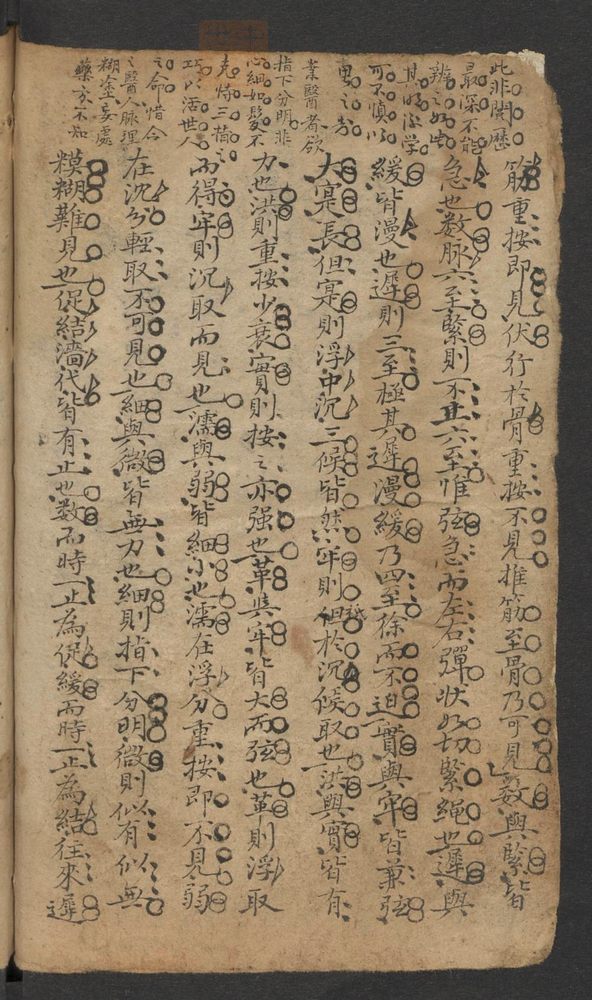 此非閱歷
最深不能
辨之如此
其明洽学
可不慎以
思之哉
業醫者欲
指下分明非
心細如髮不
克恃三指之
巧以活世人
之命惜今
之醫人脉理
糊塗妄處
藥方不知
筋重按即見伏行於骨重按不見推筋至骨乃可見数與緊皆
急也数脉六至緊則不止六至惟弦急而左右彈状如切緊繩也遲與
緩皆漫也遲則三至極其遲漫緩乃四至徐而不迫實與牢皆兼弦
大寔長但寔則浮中沉三候皆然牢則但於沉候取也洪與實皆有
力也洪則重按少衰實則按之亦强也革與牢皆大而弦也革則浮取
而得牢則沉取而見也濡與弱皆細小也濡在浮分重按即不見弱
在沉分輕取不可見也細與微皆無力也細則指下分明微則似有似無
糢糊難見也促結濇代皆有止也数而時一止為促緩而時一止為結往來遲